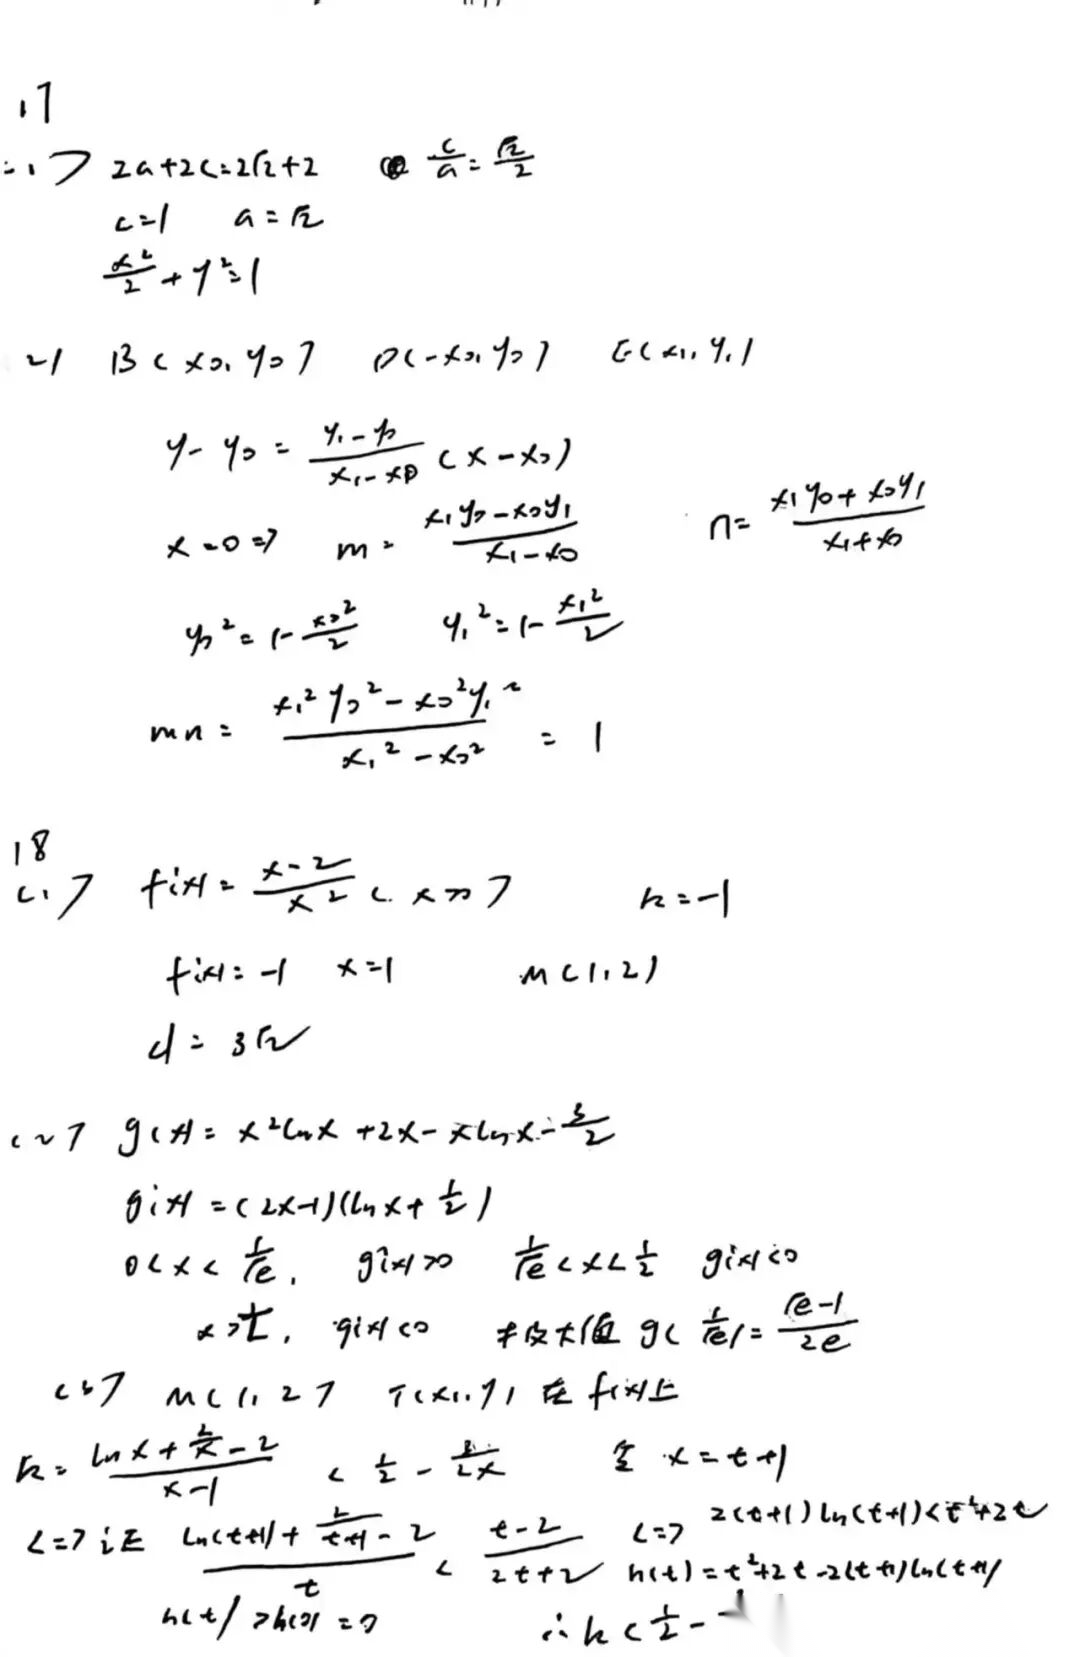 17
(1) 2a+2c=2√2+2 c/a=√2/2
c=1 a=√2
x²/2+y²=1
2) B(x₀,y₀) D(-x₀,y₀) E(x₁,y₁)
y-y₀=(y₁-y₀)/(x₁-x₀)(x-x₀)
x=0⇒ m=(x₁y₀-x₀y₁)/(x₁-x₀) n=(x₁y₀+x₀y₁)/(x₁+x₀)
y₀²=1-x₀²/2 y₁²=1-x₁²/2
mn=(x₁²y₀²-x₀²y₁²)/(x₁²-x₀²)=1
18
(1) f'(x)=(x-2)/x² (x>0) k=-1
f'(x)=-1 x=1 M(1,2)
d=3√2
(2) g(x)=x²lnx+2x-xlnx-3/2
g'(x)=(2x-1)(lnx+1/2)
0<x<1/√e, g'(x)>0 1/√e<x<1/2 g'(x)<0
x>t, g'(x)<0 极大值 g(1/√e)=(√e-1)/2e
(3) M(1,2) T(x₁,y) 在f(x)上
k=(lnx+2/x-2)/(x-1)<1/2-3/2x 令x=t+1
<=>证 (ln(t+1)+2/(t+1)-2)/t<(t-2)/(2t+2) <=> 2(t+1)ln(t+1)<t²+2t
h(t)=t²+2t-2(t+1)ln(t+1)
h(t)>h(0)=0 ∴k<1/2-